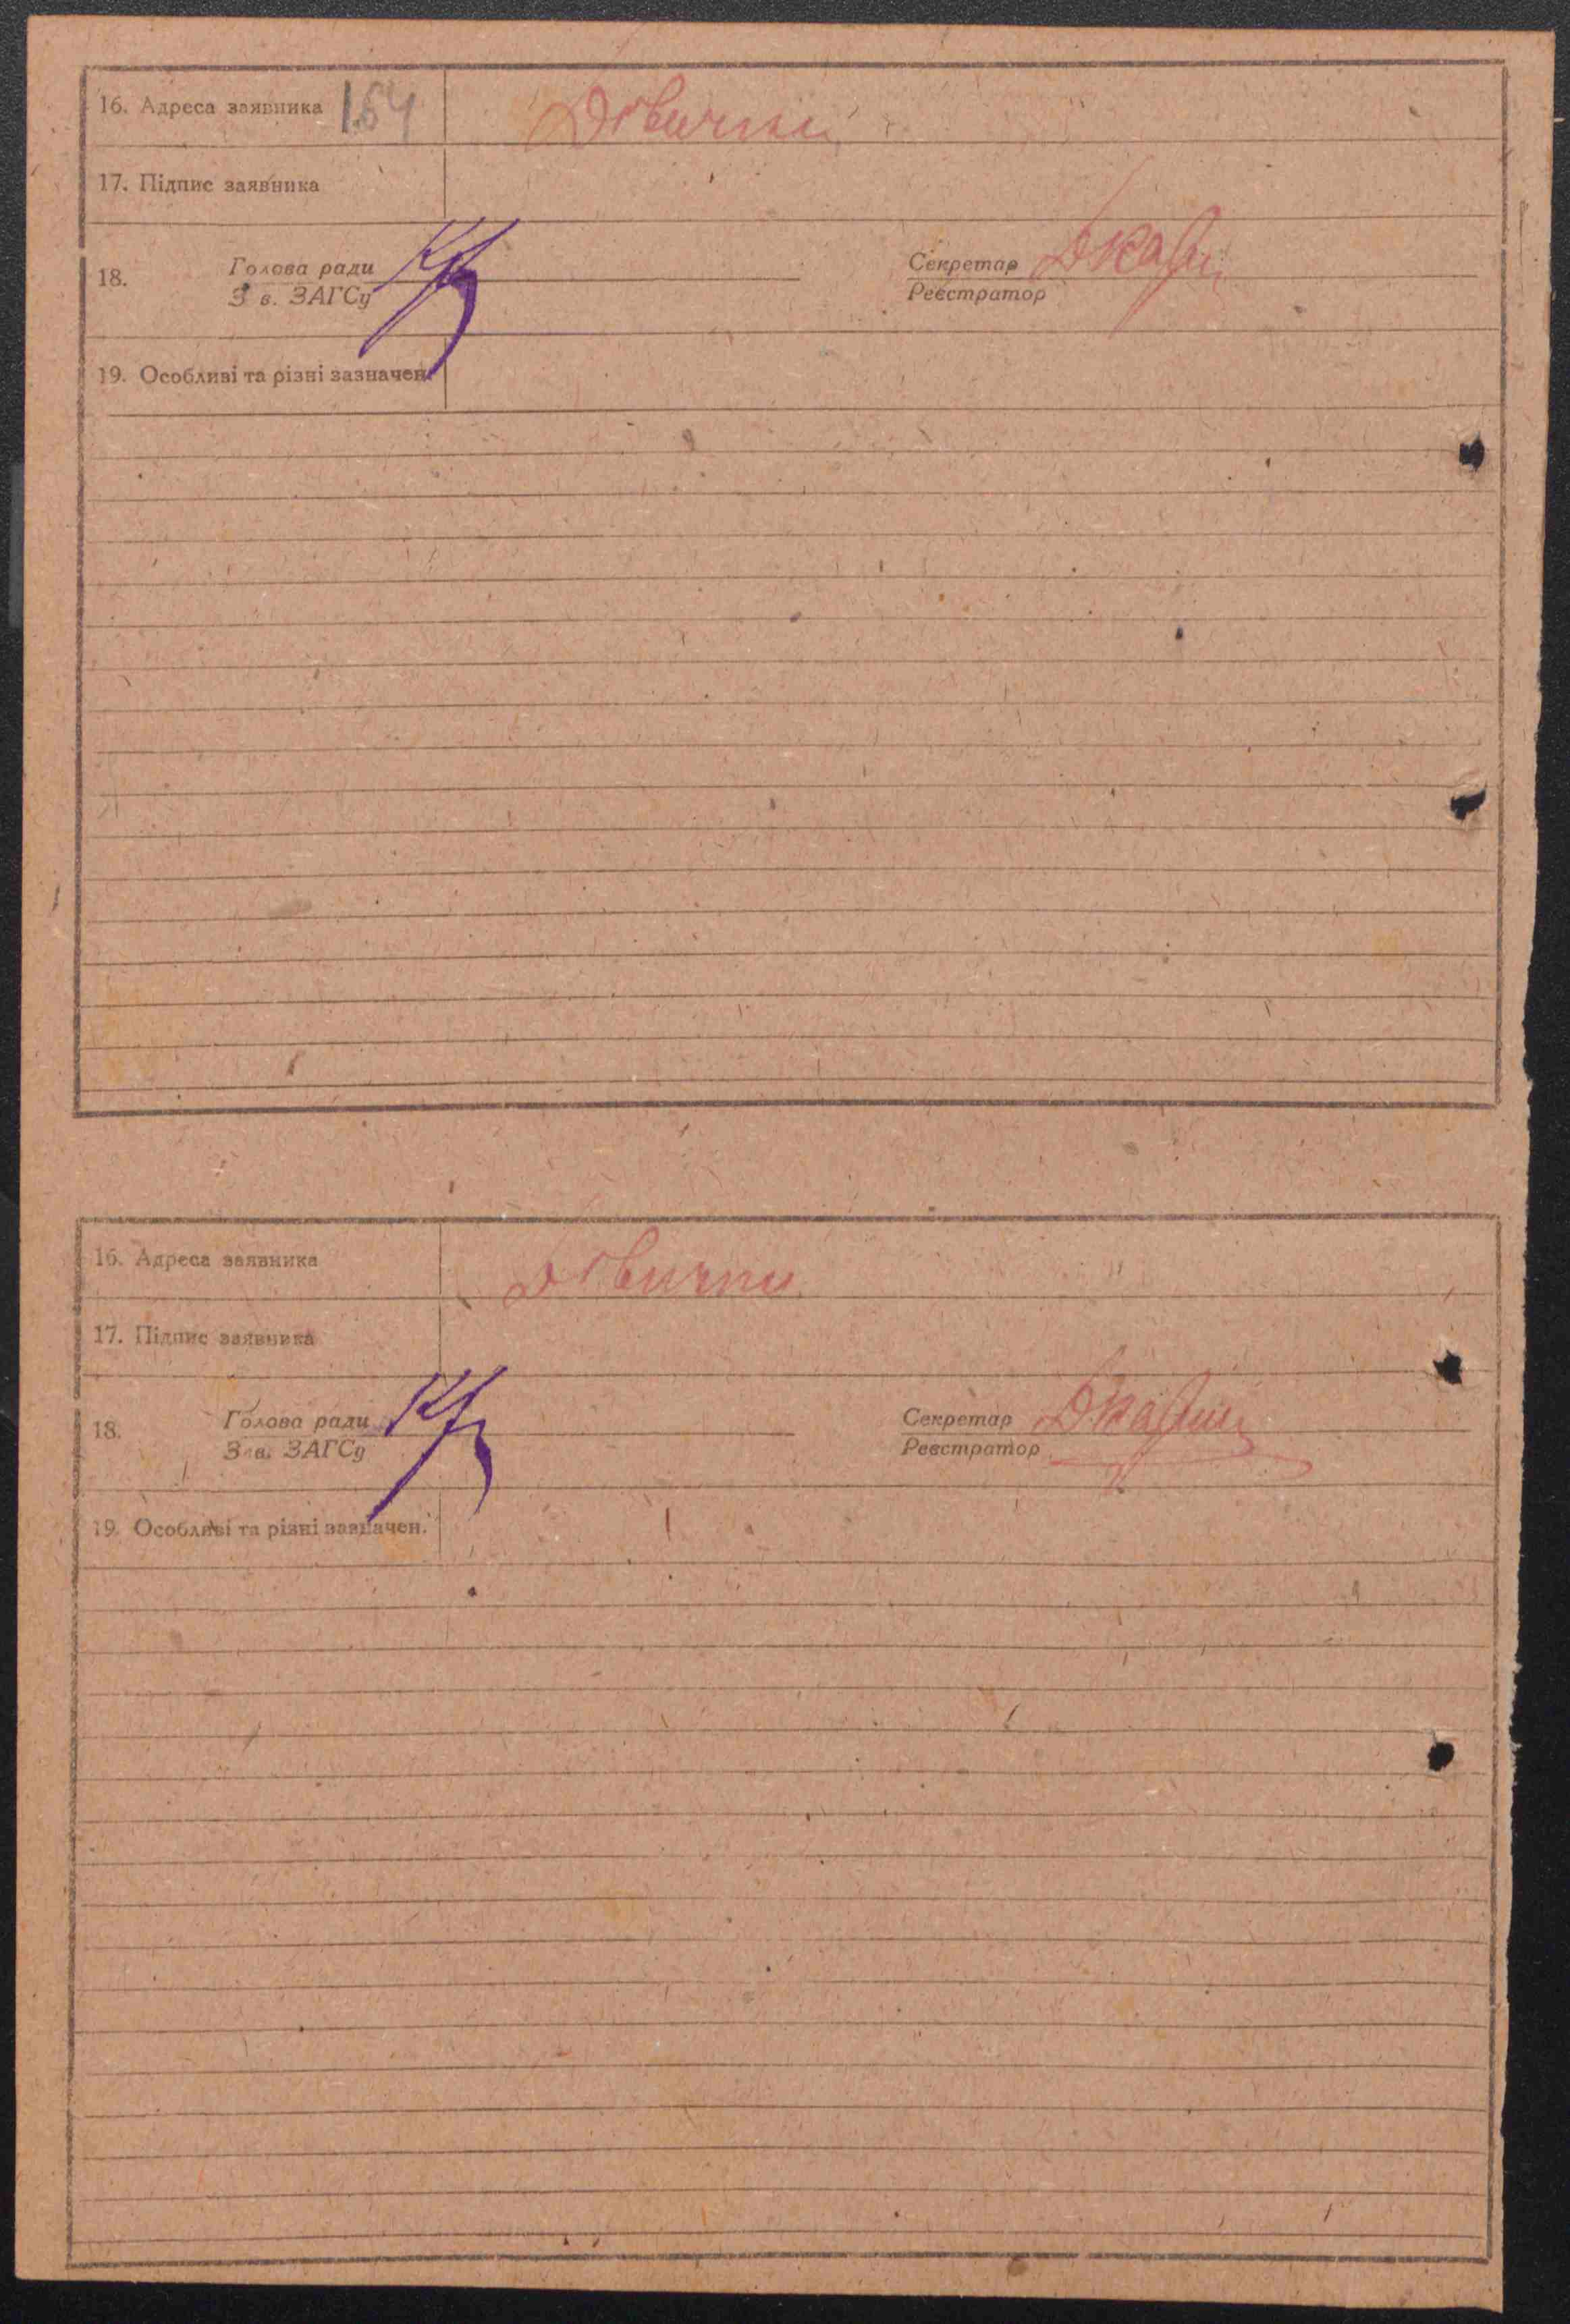 16. Адреса заявника 164 Дівички
17. Підпис заявника
18. Голова ради Секретар
З в. ЗАГСу Реєстратор
19. Особливі та різні зазначен.
16. Адреса заявника Дівички
17. Підпис заявника
18. Голова ради Секретар
Зав. ЗАГСу Реєстратор
19. Особливі та різні зазначен.